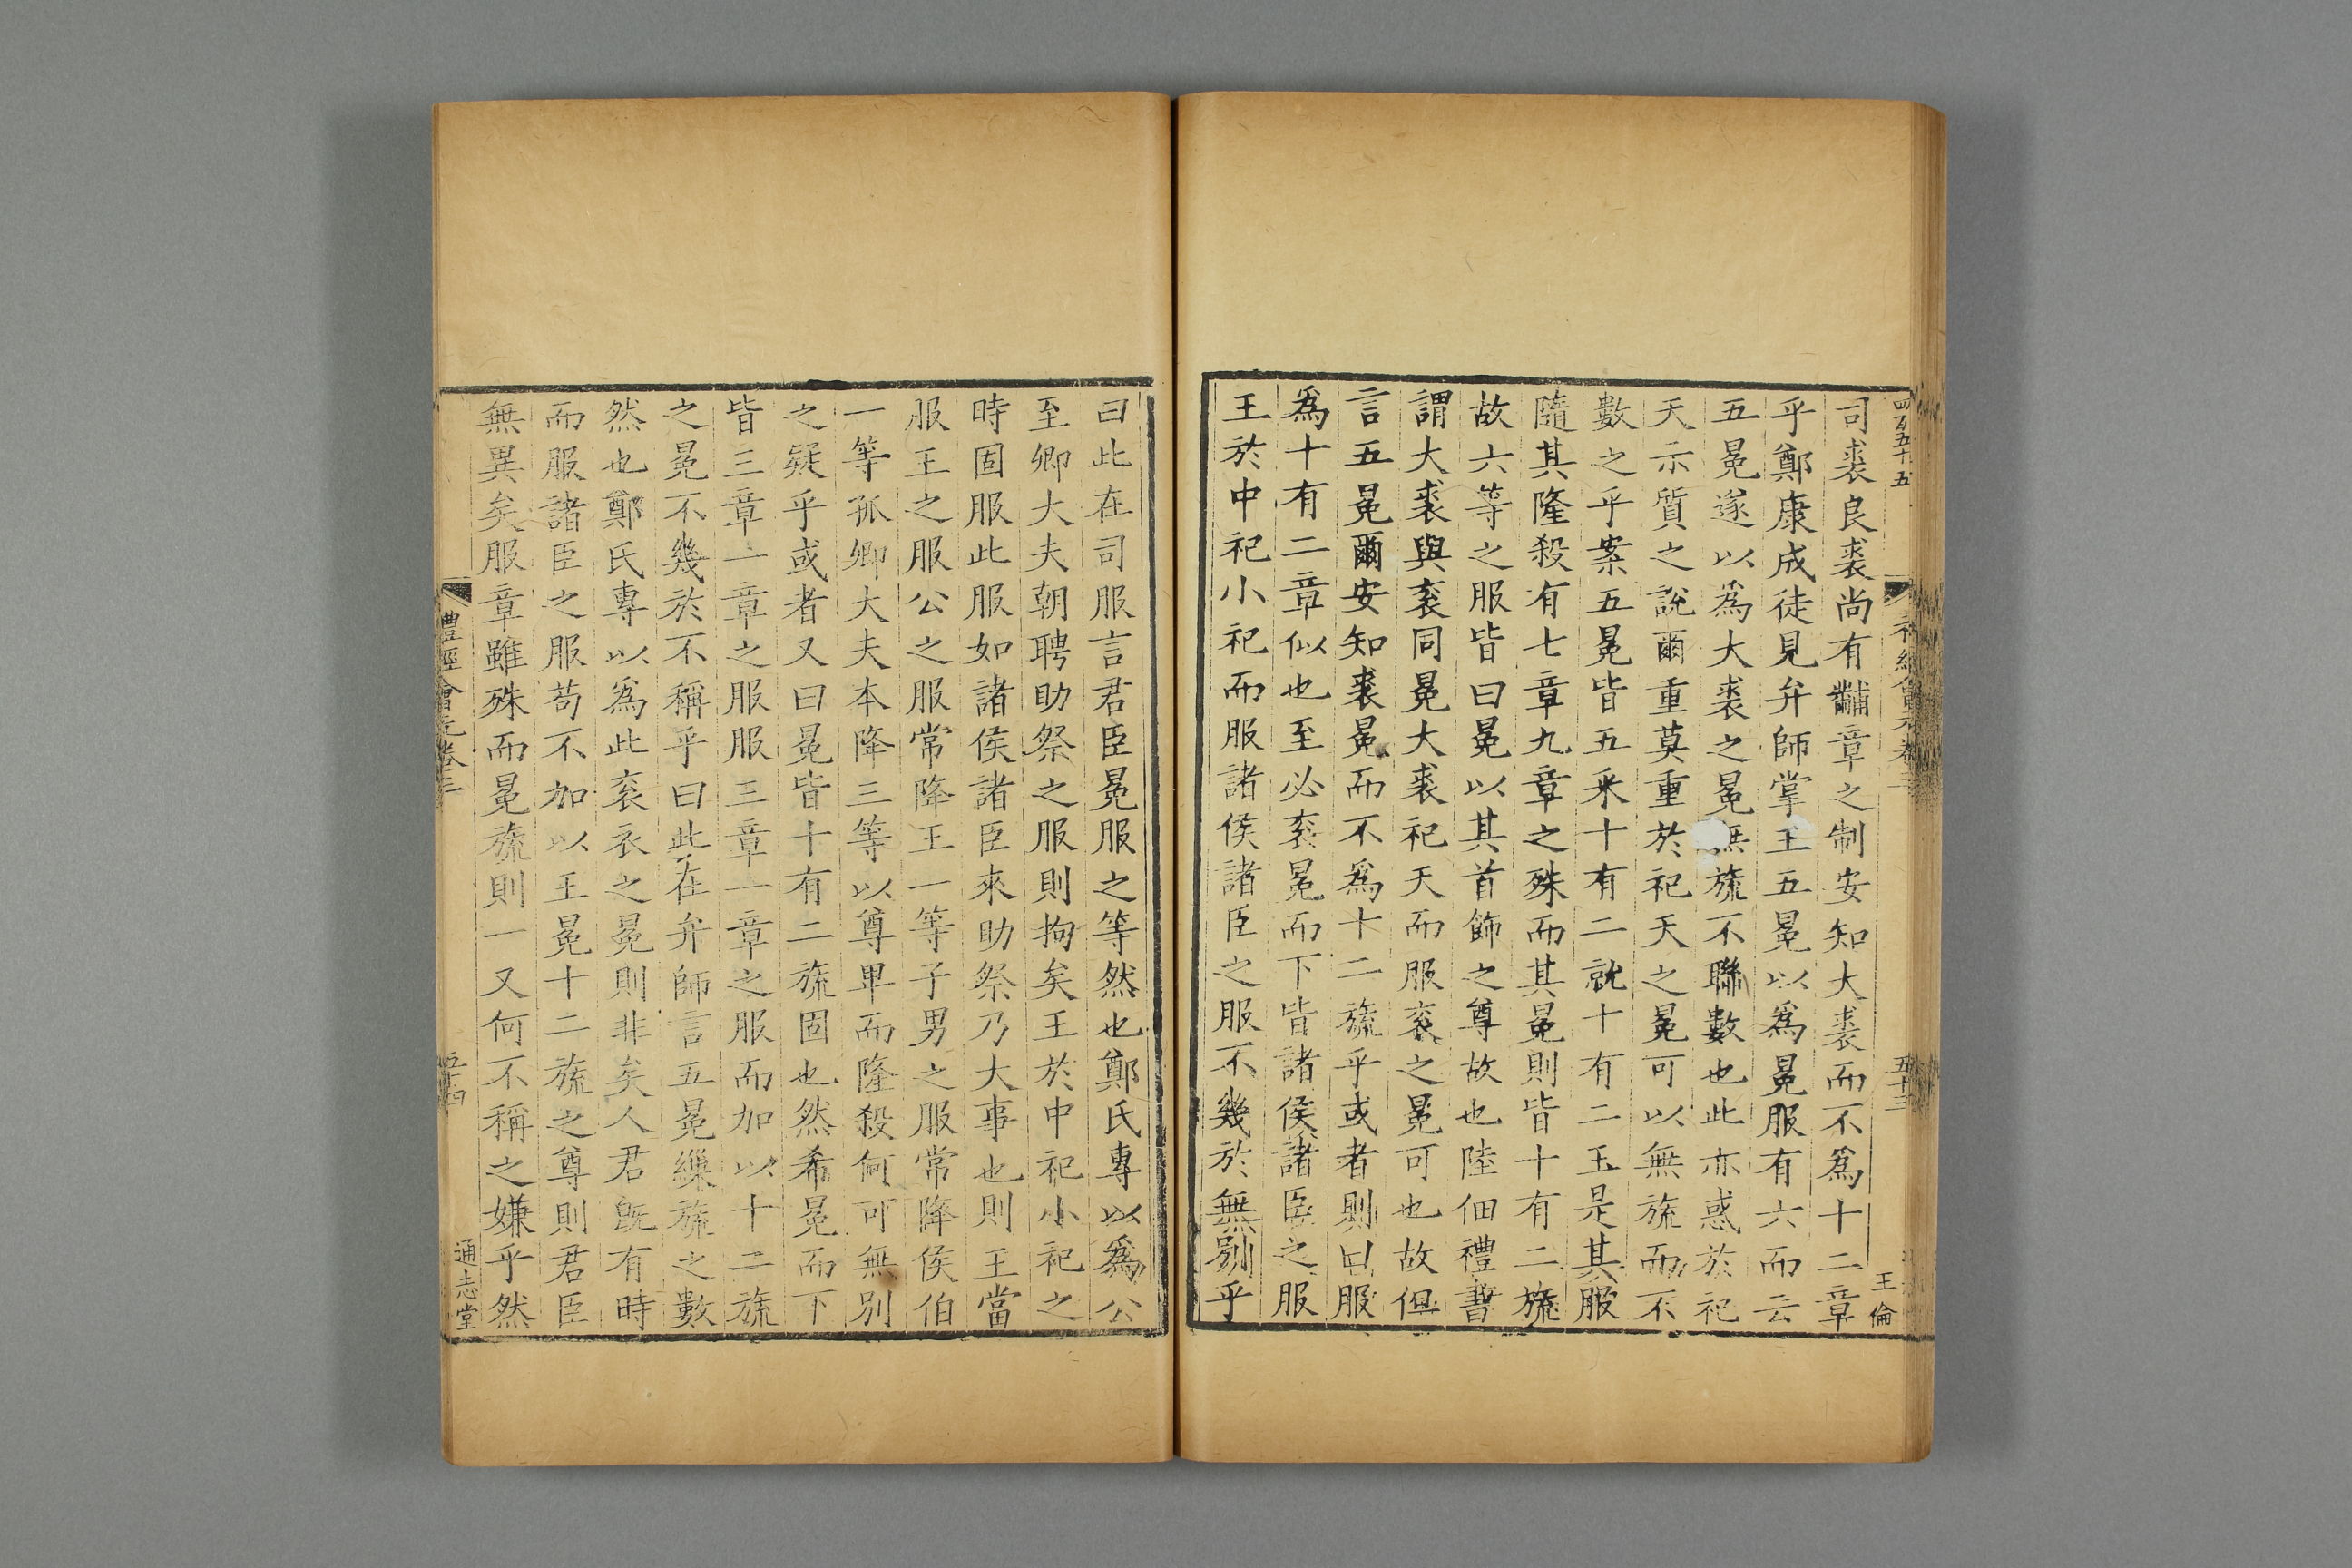 四百五十五
王倫
五十三
司裘良裘尚有黼章之制安知大裘而不爲十二章
乎鄭康成徒見弁師掌王五冕以爲冕服有六而云
五冕遂以爲大裘之冕無旒不聯數也此亦惑於祀
天示質之說爾重莫重於祀天之冕可以無旒而不
數之乎案五冕皆五采十有二就十有二玉是其服
隨其隆殺有七章九章之殊而其冕則皆十有二旒
故六等之服皆曰冕以其首飾之尊故也陸佃禮書
謂大裘與衮同冕大裘祀天而服衮之冕可也故但
言五冕爾安知裘冕而不爲十二旒乎或者則曰服
爲十有二章似也至必衮冕而下皆諸侯諸臣之服
王於中祀小祀而服諸侯諸臣之服不幾於無別乎
曰此在司服言君臣冕服之等然也鄭氏專以爲公
至卿大夫朝聘助祭之服則拘矣王於中祀小祀之
時固服此服如諸侯諸臣來助祭乃大事也則王當
服王之服公之服常降王一等子男之服常降侯伯
一等孤卿大夫本降三等以尊卑而隆殺何可無別
之疑乎或者又曰冕皆十有二旒固也然希冕而下
皆三章一章之服服三章一章之服而加以十二旒
之冕不幾於不稱乎曰此在弁師言五冕繅旒之數
然也鄭氏專以爲此衮衣之冕則非矣人君旣有時
而服諸臣之服苟不加以王冕十二旒之尊則君臣
無異矣服章雖殊而冕旒則一又何不稱之嫌乎然
禮經會元卷三
五十四
通志堂